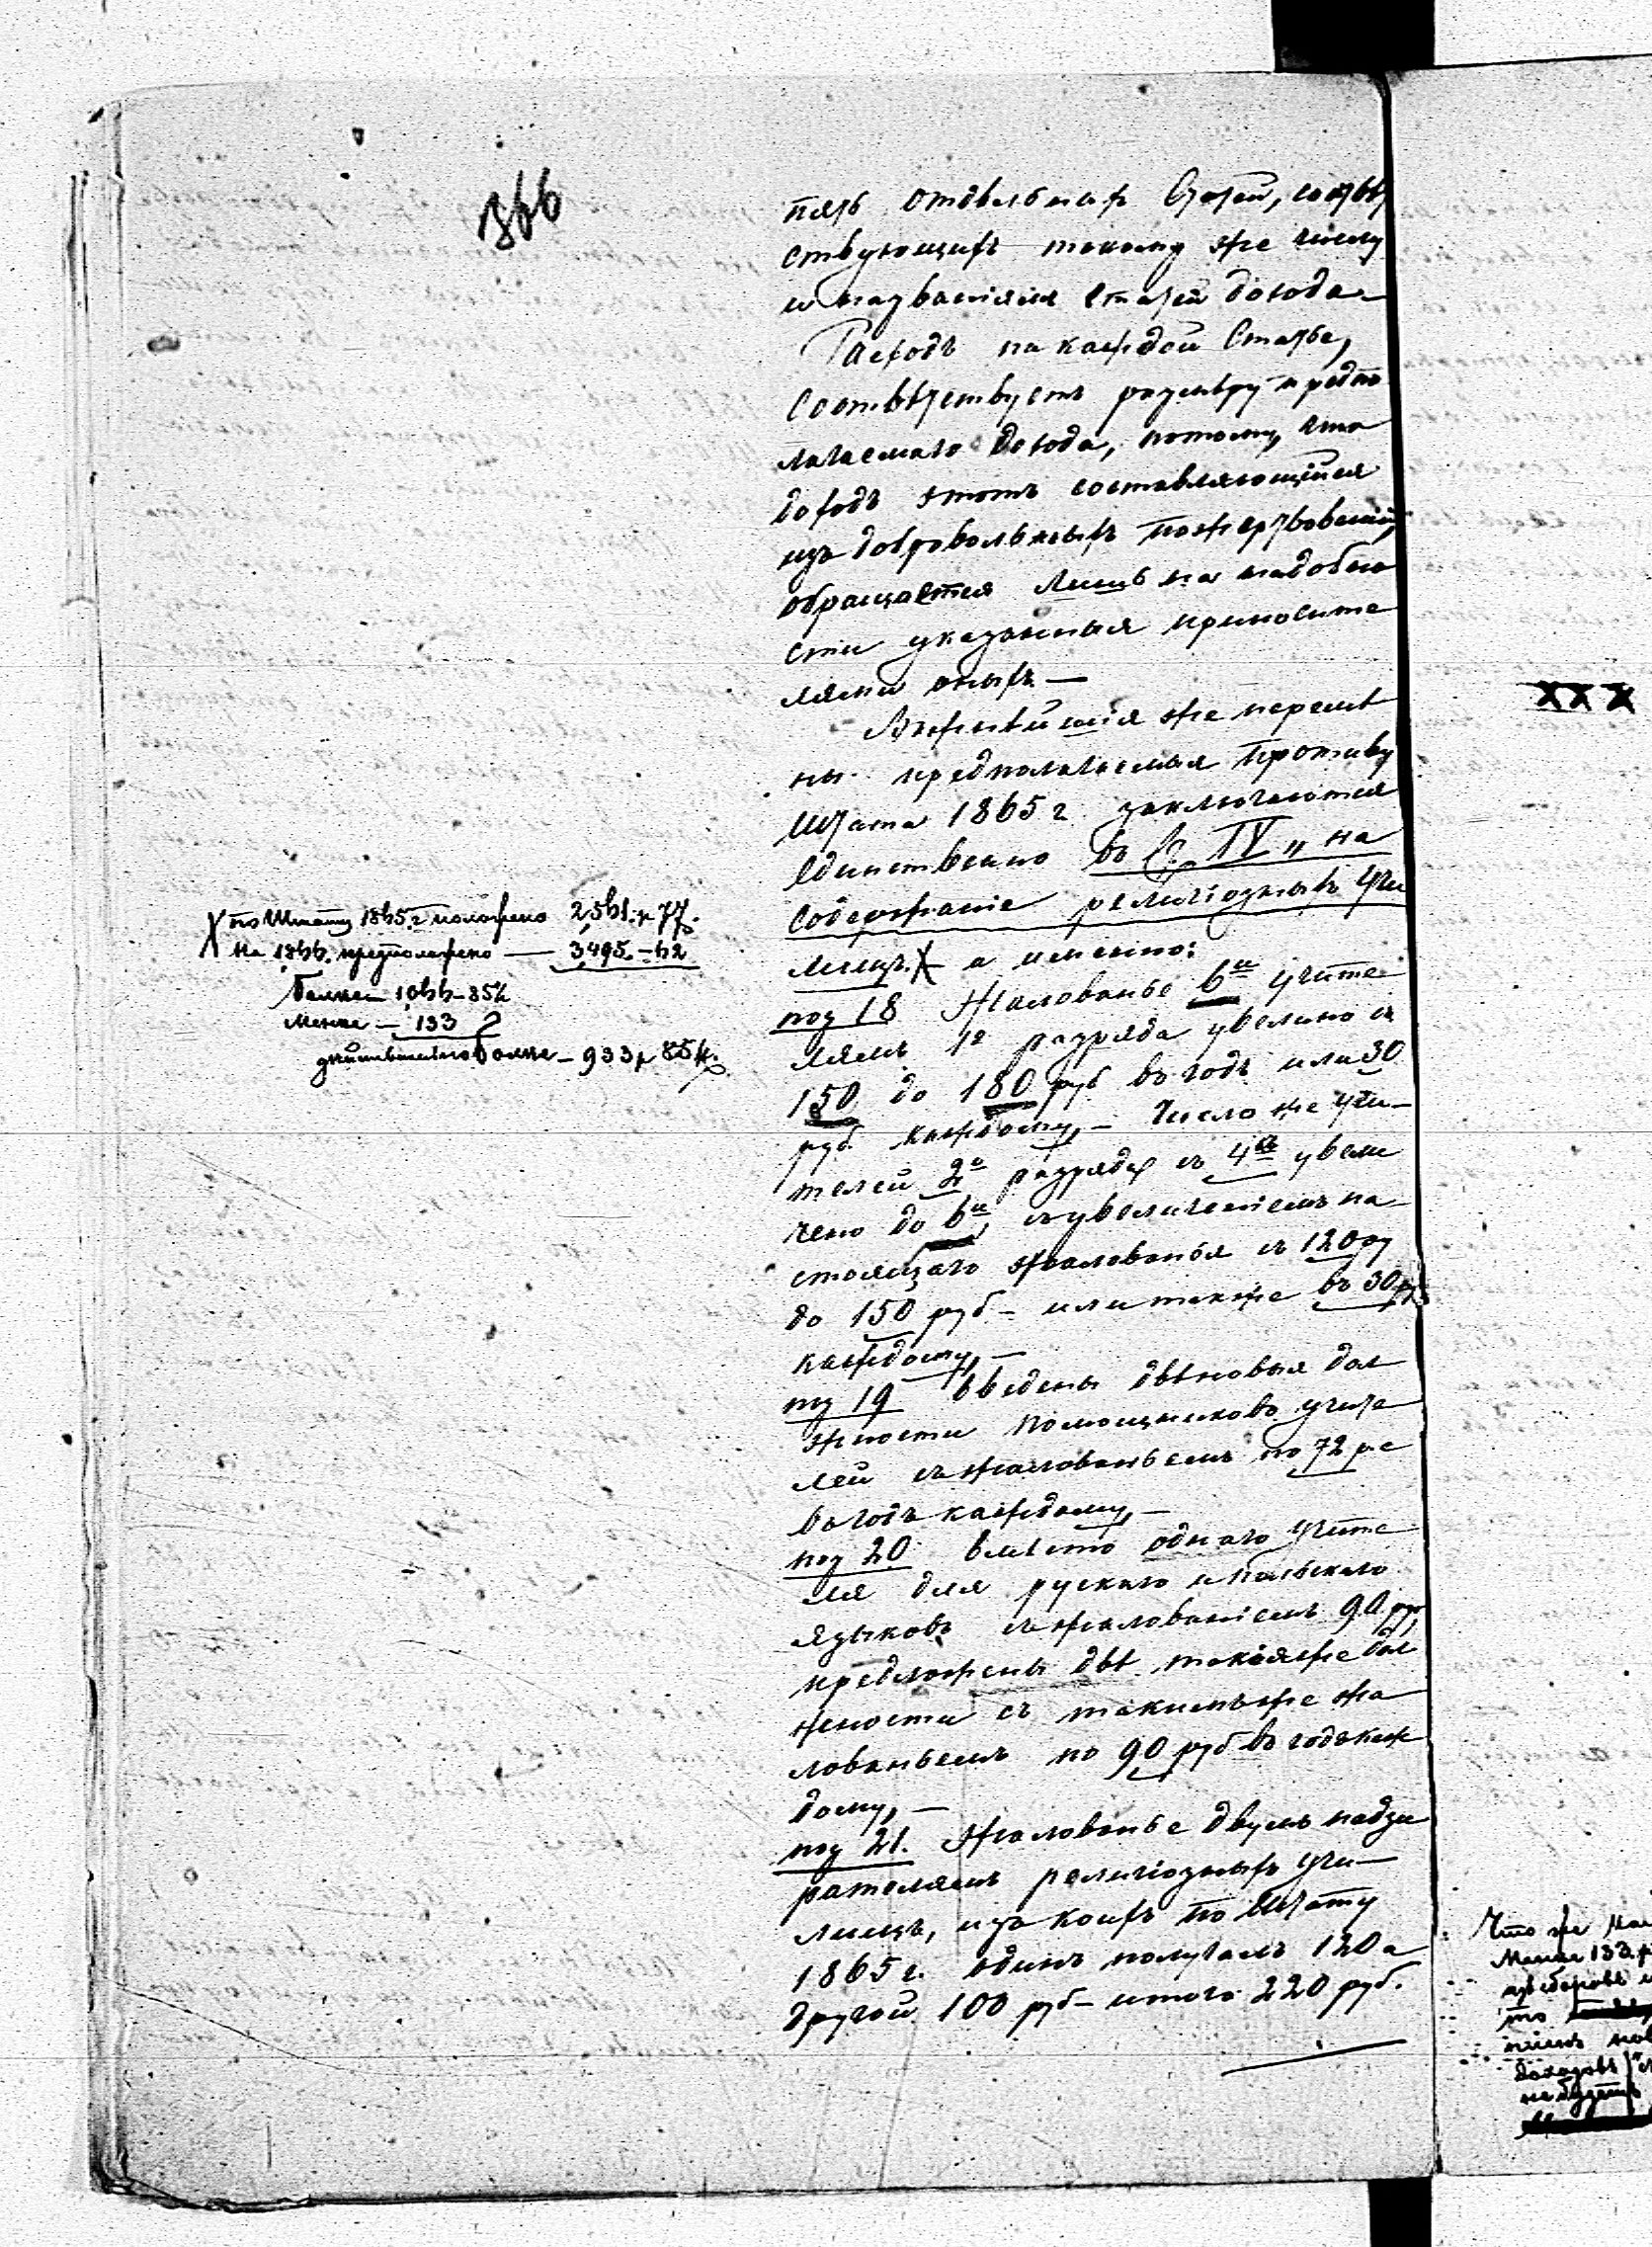 366
пять отдѣльныхъ Статей, соотвѣт
ствующихъ такому же числу
и названіямъ Статей дохода
Расходъ на каждой Статье,
соотвѣтствуетъ размѣру предпо
лагаемаго дохода, потому, что
доходъ этотъ составляющійся
изъ добровольныхъ пожертвованій,
обращается лишь на надобно
сти указанныя приносите
лями оныхъ —
Важнѣйшія же перемѣ
ны предполагаемыя противу
Штата 1865 г заключаются
единственно въ Ст. IV „ на
содержаніе религіозныхъ учи
лищъ. X а именно:
поз 18 Жалованье 6и учите
лямъ 1го разряда увеличено съ
150 до 180 руб въ годъ или 30
руб каждому, — Число же учи-
телей 2го разряда съ 4хъ увели
чено до 6и, съ увеличеніемъ на
стоящаго жалованья съ 120 ру
до 150 руб — или также въ 30 р
каждому, —
поз 19 введены двѣ новыя дол
жности помощниковъ учите
лей съ жалованьемъ по 72 р с
въ годъ каждому, —
поз 20 вмѣсто однаго учите
ля для рускаго и польскаго
языковъ съ жалованіемъ 90 руб
предложены двѣ такія же дол
жности съ такимъ же жа
лованьемъ по 90 руб въ годъ каж
дому, —
поз 21. Жалованье двумъ надзи
рателямъ религіозныхъ учи—
лищъ, изъ коихъ по Штату
1865 г. одинъ получалъ 120 а
другой 100 руб — итого 220 руб.
X по Штату 1865. г положено 2,561. р 77.
на 1866. предположено — 3,495. — 62
Болѣе — 1,066 — 85 к
Менѣе — 133
дѣйствительно болѣе — 933 р 85 к.
XXX
Что же
Менѣе 133. р
то
доходовъ
не будетъ